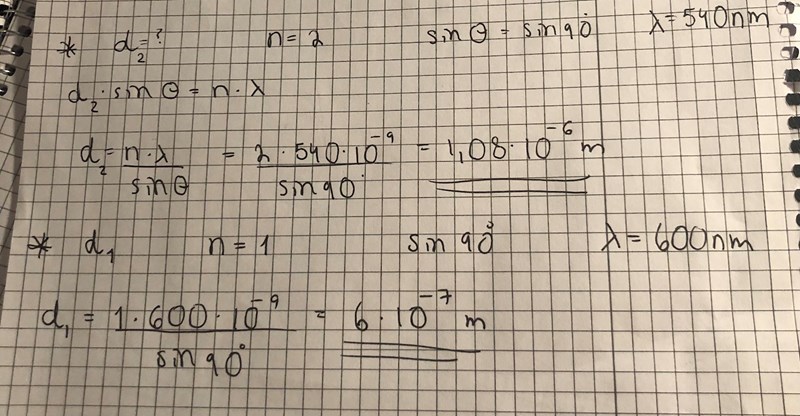 * d₂=? n=2 sin θ = sin 90° λ=540nm
d₂·sin θ = n·λ
d₂ = n·λ / sin θ = 2·540·10⁻⁹ / sin 90° = 1,08·10⁻⁶ m
* d₁ n=1 sin 90° λ=600nm
d₁ = 1·600·10⁻⁹ / sin 90° = 6·10⁻⁷ m